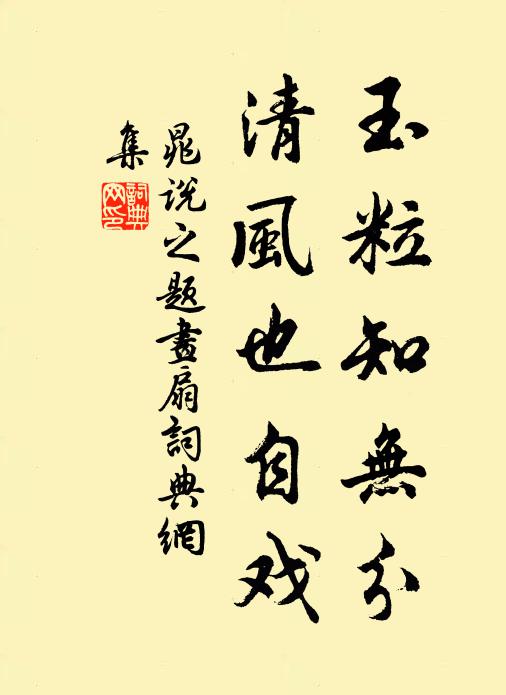 玉粒知無分
清風也自戏
晁说之题畫扇詞典網
集
詞典网印